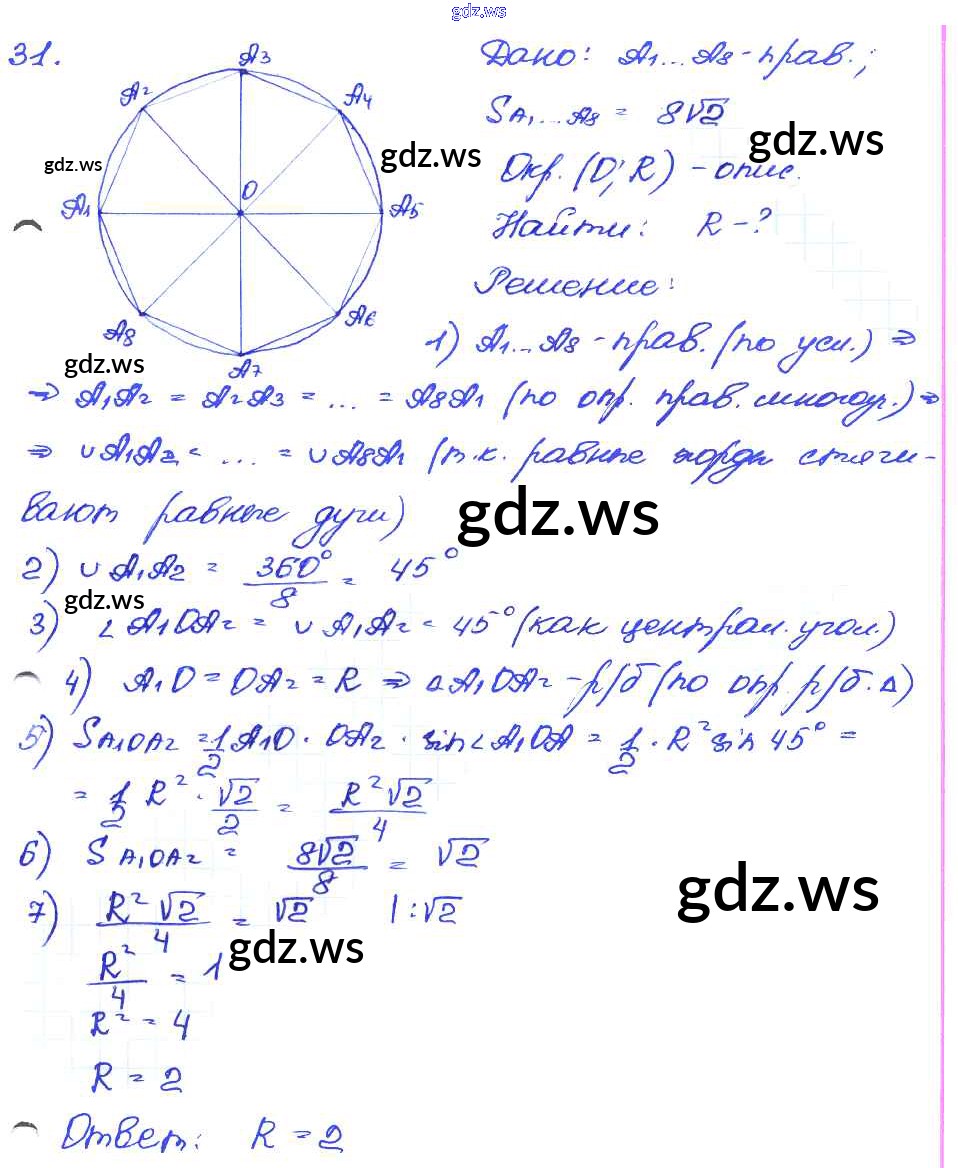 gdz.ws
31.
A3
A2
A4
gdz.ws
A1
O
A5
A8
A6
A7
gdz.ws
Дано: A1...A8 - прав.;
SA1...A8 = 8√2
gdz.ws
gdz.ws
Окр. (O; R) - опис.
Найти: R - ?
Решение:
1) A1...A8 - прав. (по усл.) ⇒
⇒ A1A2 = A2A3 = ... = A8A1 (по опр. прав. многоуг.) ⇒
⇒ ∪A1A2 = ... = ∪A8A1 (т.к. равные хорды стяги-
вают равные дуги)
gdz.ws
2) ∪A1A2 = 360°/8 = 45°
gdz.ws
3) ∠A1OA2 = ∪A1A2 = 45° (как централ. угол.)
4) A1O = OA2 = R ⇒ △A1OA2 - р/б (по опр. р/б. △)
5) SA1OA2 = 1/2 A1O · OA2 · sin∠A1OA = 1/2 · R² sin 45° =
= 1/2 R² · √2/2 = R²√2/4
6) SA1OA2 = 8√2/8 = √2
gdz.ws
7) R²√2/4 = √2 | : √2
gdz.ws
R²/4 = 1
R² = 4
R = 2
Ответ: R = 2